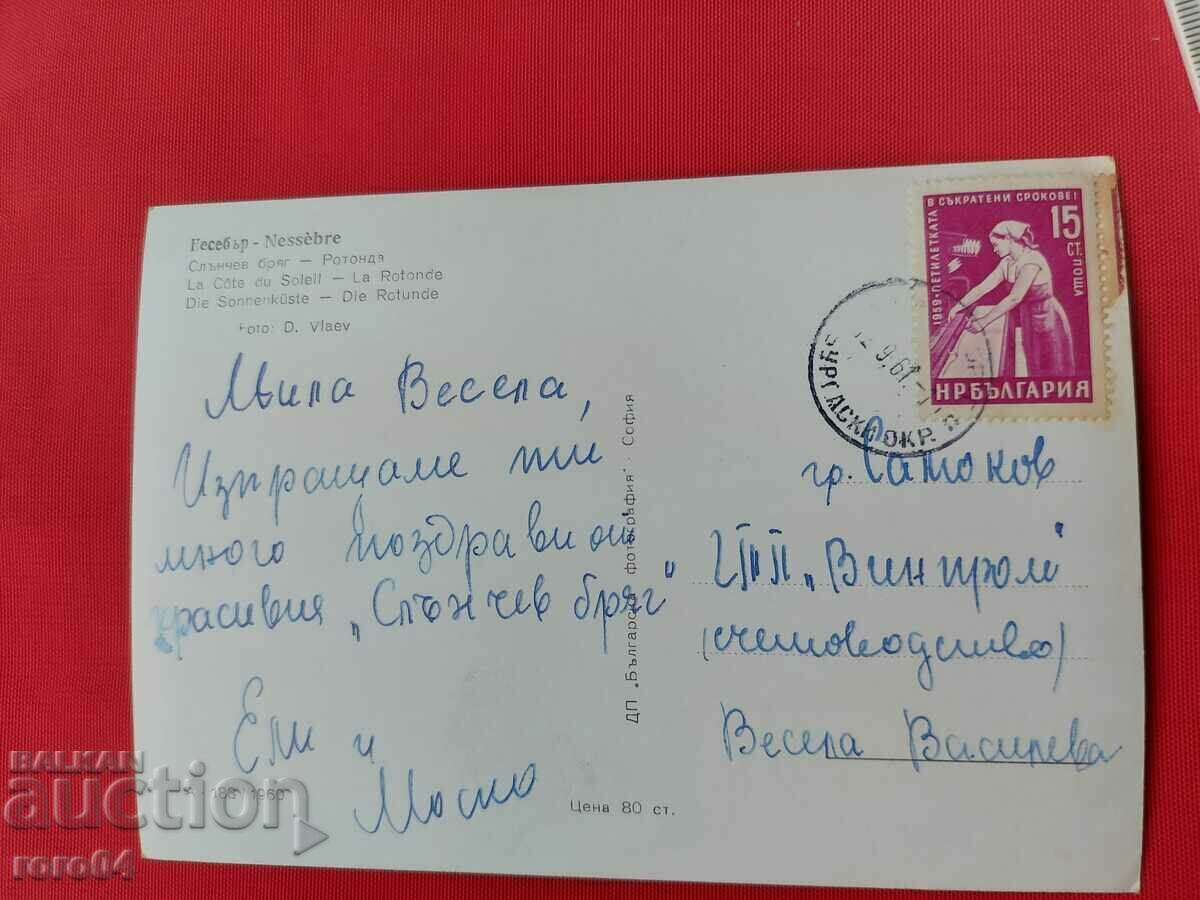 Несебър - Nessèbre
Слънчев бряг — Ротонда
La Côte du Soleil — La Rotonde
Die Sonnenküste — Die Rotunde
Фото: D. Vlaev
Мила Весела,
Изпращаме ти
много поздрави от
красивия „Слънчев бряг"
Ели и
Моско
1960
Цена 80 ст.
ДП „Българска фотография" - София
1959 • ПЕТИЛЕТКАТА
В СЪКРАТЕНИ СРОКОВЕ!
15
СТ.
ПОЩА
НР БЪЛГАРИЯ
9.61
БУРГАСКИ ОКР.
гр. Самоков
„Винпром"
(счетоводство)
Весела Василева
BALKAN
auction
roro04